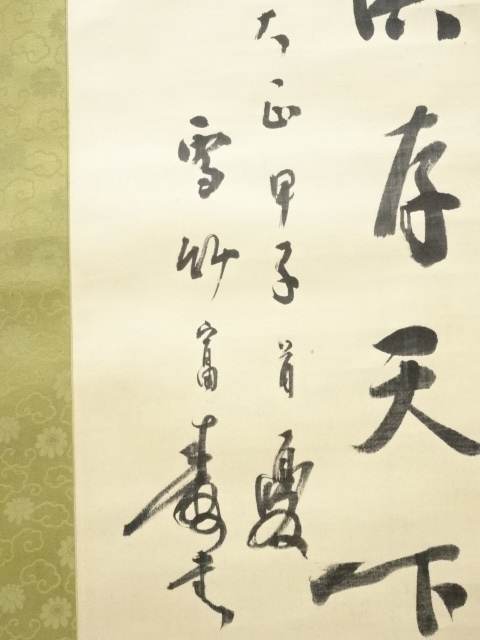 存天下
大正甲子首夏
雪竹富書